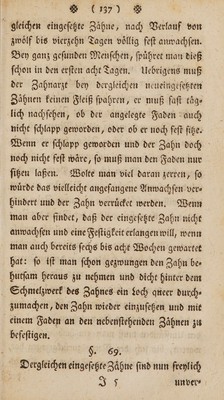 ※ ( 137 ) ※
gleichen eingesetzte Zähne, nach Verlauf von
zwölf bis vierzehn Tagen völlig fest anwachsen.
Bey ganz gesunden Menschen, spühret man dieß
schon in den ersten acht Tagen. Uebrigens muß
der Zahnarzt bey dergleichen neueingesetzten
Zähnen keinen Fleiß sparhren, er muß fast täg-
lich nachsehen, ob der angelegte Faden auch
nicht schlapp geworden, oder ob er noch fest sitze.
Wenn er schlapp geworden und der Zahn doch
noch nicht fest wäre, so muß man den Faden nur
sitzen laßen. Wolte man viel daran zerren, so
würde das vielleicht angefangene Anwachsen ver-
hindert und der Zahn verrücket werden. Wenn
man aber findet, daß der eingesetzte Zahn nicht
anwachsen und eine Festigkeit erlangen will, wenn
man auch bereits sechs bis acht Wochen gewartet
hat: so ist man schon gezwungen den Zahn be-
hutsam heraus zu nehmen und dicht hinter dem
Schmelzwerk des Zahnes ein Loch queer durch-
zumachen, den Zahn wieder einzusetzen und mit
einem Faden an den nebenstehenden Zähnen zu
befestigen.
§. 69.
Dergleichen eingesetzte Zähne sind nun freylich
J 5 unver-